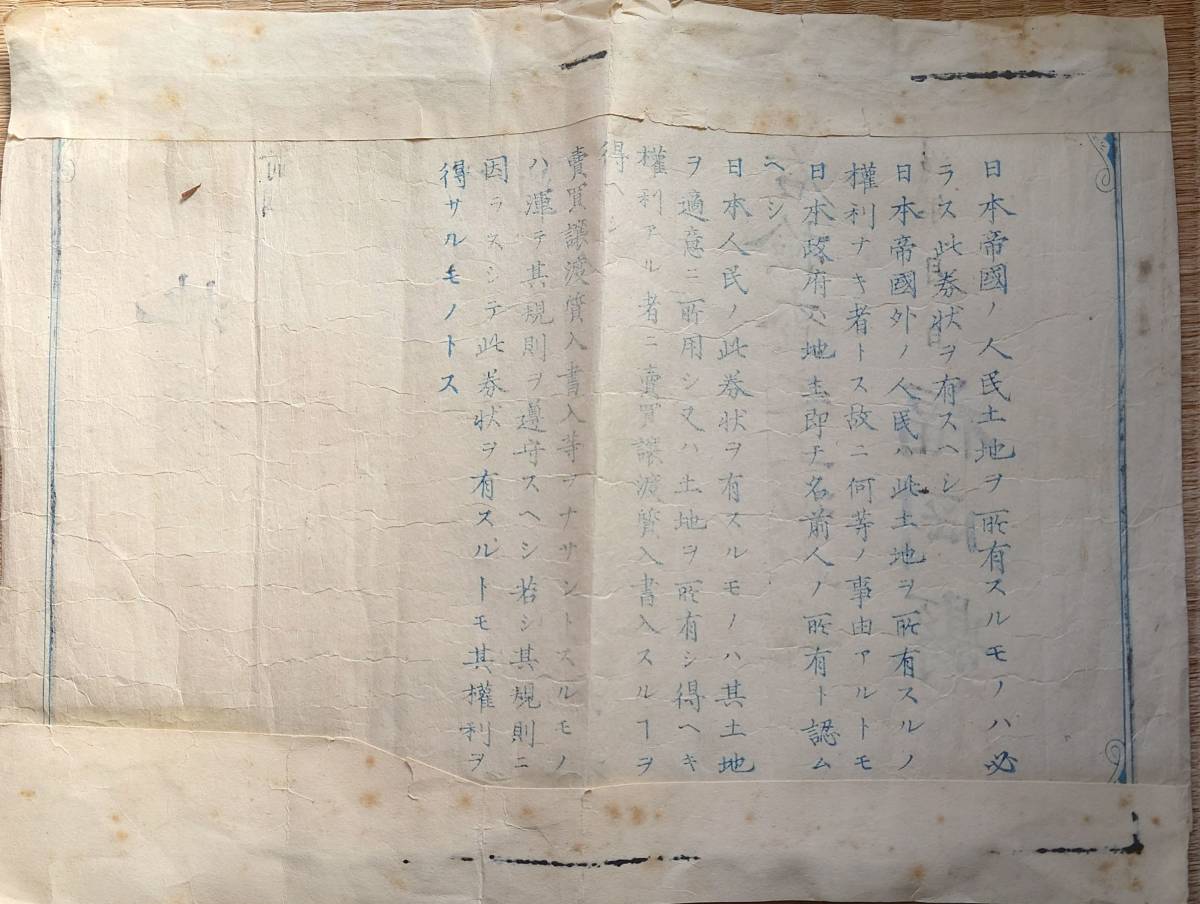 日本帝國ノ人民土地ヲ所有スルモノハ必
ラス此券状ヲ有スヘシ
日本帝國外ノ人民ハ此土地ヲ所有スルノ
權利ナキ者トス故ニ何等ノ事由アルトモ
日本政府ハ地主即チ名前人ノ所有ト認ム
ヘシ
日本人民ノ此券状ヲ有スルモノハ其土地
ヲ適意ニ所用シ又ハ土地ヲ所有シ得ヘキ
權利アル者ニ賣買譲渡質入書入スルヿヲ
得ヘシ
賣買譲渡質入書入等ヲナサントスルモノ
ハ渾テ其規則ヲ遵守スヘシ若シ其規則ニ
因ラスシテ此券状ヲ有スルトモ其權利ヲ
得サルモノトス